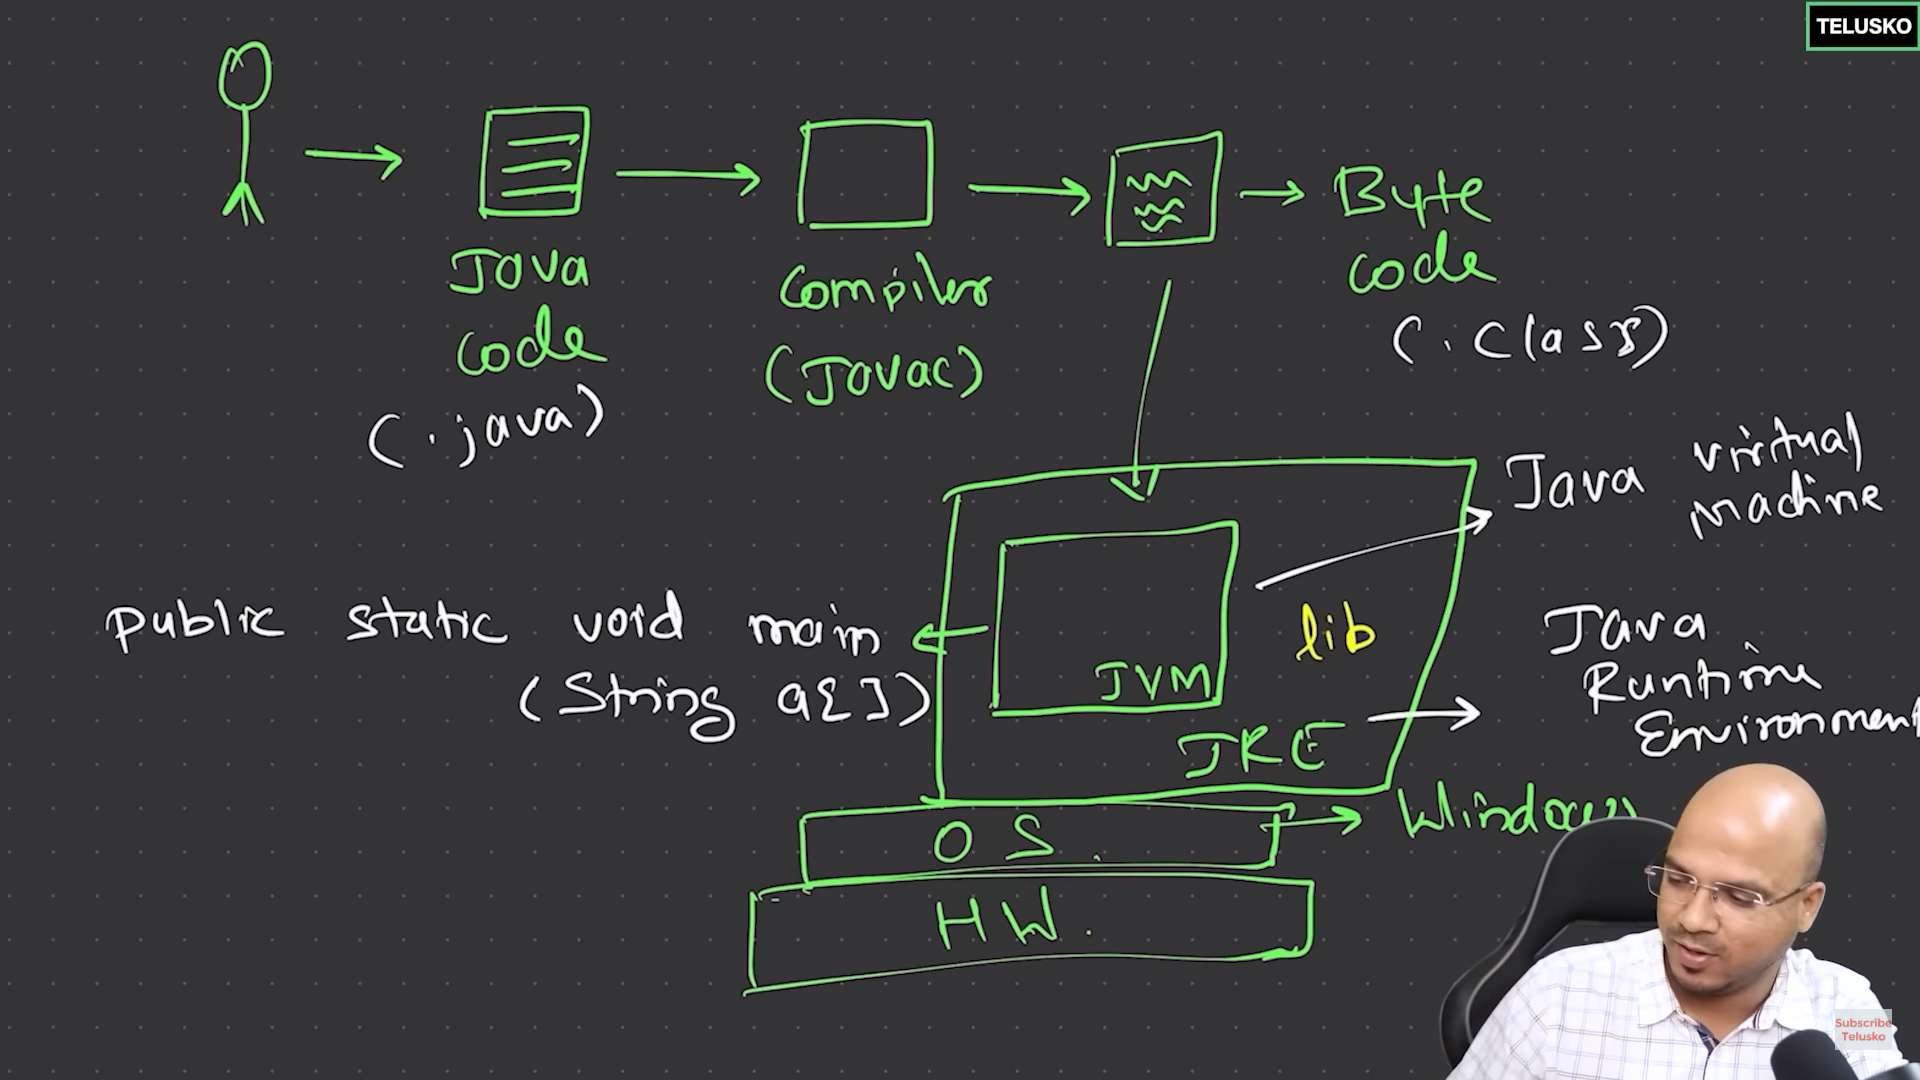 TELUSKO
Java
code
(.java)
Compiler
(Javac)
Byte
code
(.class)
Java Virtual
Machine
public static void main
(String a[])
lib
JVM
Java
Runtime
Environment
JRE
OS.
Windows
HW.
Subscribe
Telusko